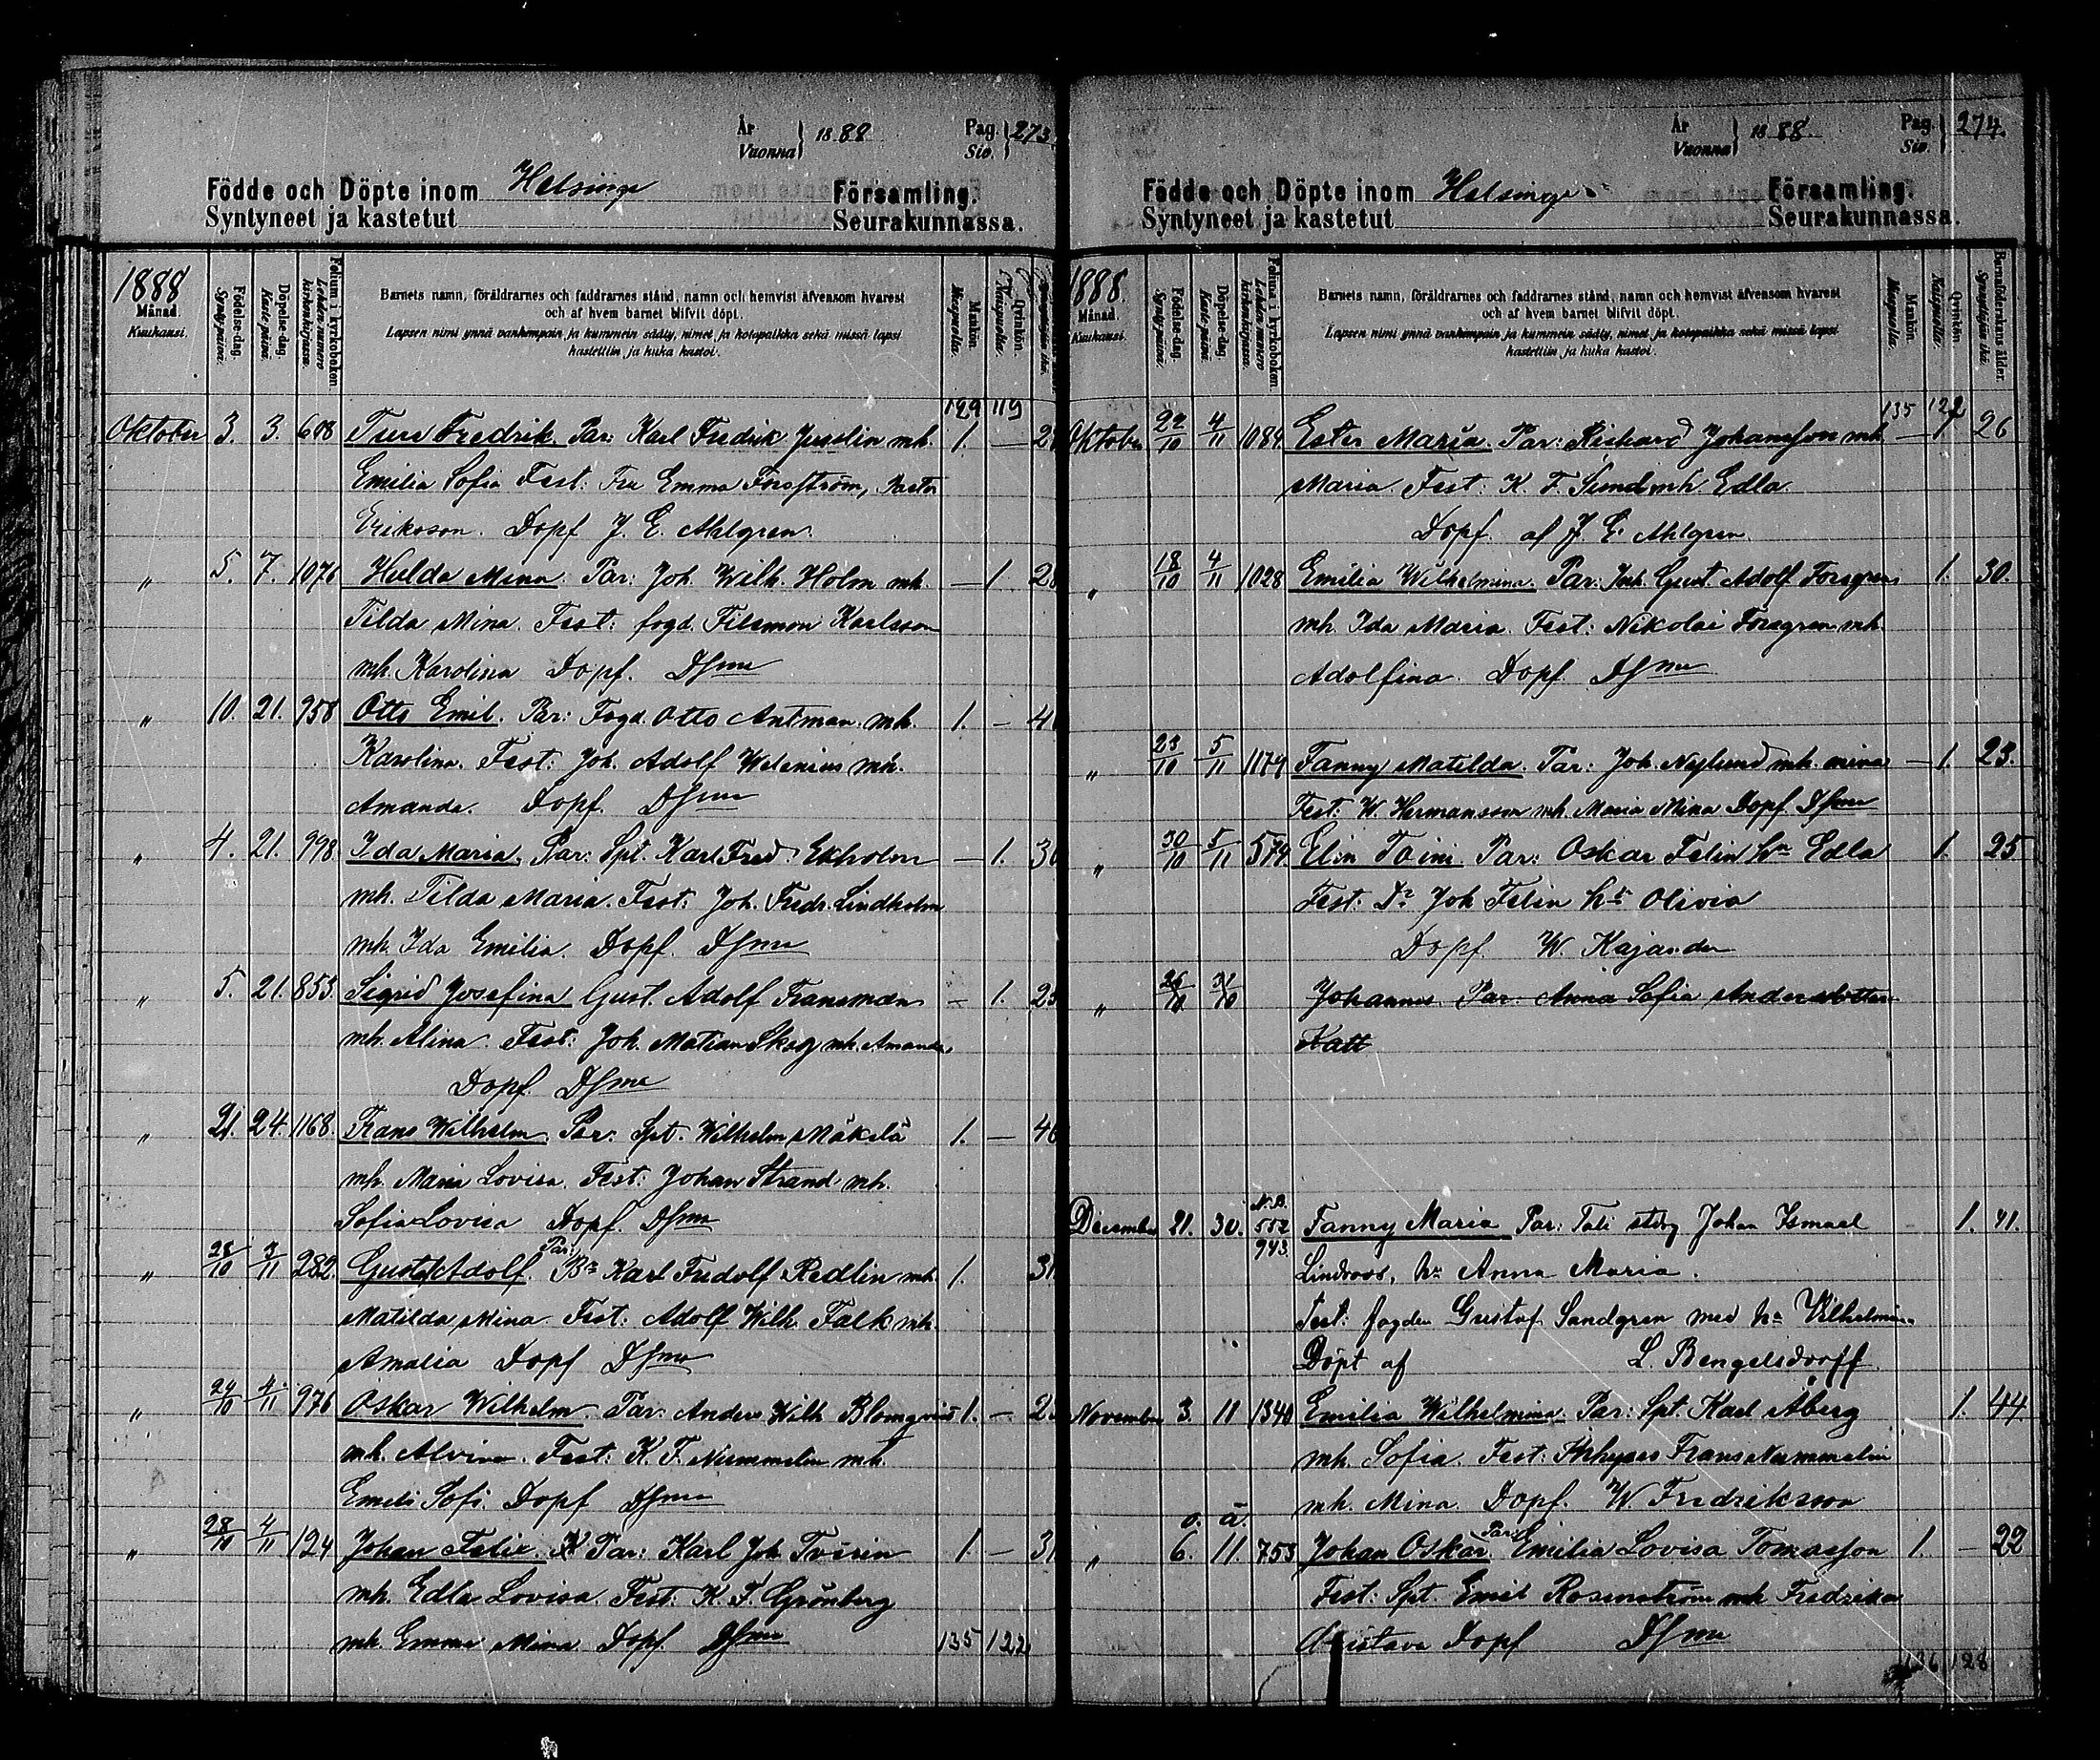 År
Vuonna } 1888
Pag.
Siv. } 273.
Födde och Döpte inom Helsinge Församling.
Syntyneet ja kastetut Seurakunnassa.
1888
Månad.
Kuukausi.
Födelse-dag.
Syntypäivä.
Döpelse-dag.
Kastepäivä.
Folium i kyrkoboken.
Lehden numero kirkonkirjassa.
Barnets namn, föräldrarnes och faddrarnes stånd, namn och hemvist äfvensom hvarest
och af hvem barnet blifvit döpt.
Lapsen nimi ynnä vanhempain ja kummein sääty, nimet ja kotopaikka sekä missä lapsi
kastettiin ja kuka kastoi.
Mankön.
Miespuolia.
Qvinkön.
Vaispuolia.
129 119
Oktober 3. 3. 608 Ture Fredrik Par: Karl Fredrik Jusslin mh. 1. —
Emilia Sofia Test: Fru Emma Forsström, Pastor
Erikson. Döpf J. E. Ahlgren.
" 5. 7. 1076 Hulda Mina. Par: Joh. Wilh. Holm mh. — 1.
Tilda Mina. Test: fogd. Filemon Karlsson
mh. Karolina Döpf. Dsme
" 10. 21. 958 Otto Emil. Par: Fogd. Otto Antman. mh. 1. —
Karolina. Test: Joh. Adolf Welenius mh.
Amanda. Döpf. Dsme
" 4. 21. 998 Ida Maria. Par: Spt. Karl Fred. Ekholm — 1.
mh. Tilda Maria. Test: Joh. Fredr. Lindholm
mh. Ida Emilia. Döpf. Dsme
" 5. 21. 853. Sigrid Josefina Gust. Adolf Fransman — 1.
mh. Alina. Test: Joh. Skog mh. Amanda.
Döpf. Dsme
" 21. 24. 1168. Frans Wilhelm. Par: Spt. Wilhelm Mäkelä 1. —
mh. Maria Lovisa. Test: Johan Strand mh.
Sofia Lovisa Döpf. Dsme
" 28/10 3/11 282. Gustaf Adolf. Par: Bn Karl Fridolf Redlin mh. 1.
Matilda Mina. Test: Adolf Wilh. Falk mh.
Amalia Döpf Dsme
" 24/10 4/11 976 Oskar Wilhelm. Par: Anders Wilh Blomqvist 1. —
mh. Alvina. Test: K. F. Nummelin mh.
Emeli Sofi Döpf Dsme
" 28/10 4/11 124 Johan Felix. Par: Karl Joh. 1. —
mh. Edla Lovisa. Test: K. F. Grönberg
mh. Emma Mina. Döpf. Dsme 135 122
År
Vuonna } 1888.
Pag.
Siv. } 274.
Födde och Döpte inom Helsinge Församling.
Syntyneet ja kastetut Seurakunnassa.
1888.
Månad.
Kuukausi.
Födelse-dag.
Syntypäivä.
Döpelse-dag.
Kastepäivä.
Folium i kyrkoboken.
Lehden numero kirkonkirjassa.
Barnets namn, föräldrarnes och faddrarnes stånd, namn och hemvist äfvensom hvarest
och af hvem barnet blifvit döpt.
Lapsen nimi ynnä vanhempain ja kummein sääty, nimet ja kotopaikka sekä missä lapsi
kastettiin ja kuka kastoi.
Mankön.
Miespuolia.
Qvinkön.
Vaispuolia.
Barnaföderskans ålder.
Synnyttäjän ikä.
135 122
Oktober 22/10 4/11 1084 Ester Maria. Par: Rickard Johansson mh. — 1 26
Maria. Test: K. F. Sund mh. Edla.
Döpf. af J. E. Ahlgren.
" 18/10 4/11 1028 Emilia Wilhelmina. Par: Joh. Gust. Adolf Forsgren 1. 30.
mh. Ida Maria. Test: Nikolai Forsgren mh.
Adolfina. Döpf. Dsme
" 23/10 5/11 1174 Fanny Matilda. Par: Joh. Nylund mh. mina — 1. 23.
Test: W. Hermansson mh. Maria Mina Döpf. Dsme
" 30/10 5/11 574. Elin Toini. Par: Oskar Felin hn Edla 1. 25
Test: Dr Joh Felin hn Olivia
Döpf. W. Kajander
" 26/10 Johannes. Par: Anna Sofia Andersdotter
Katt
N.B.
December 21. 30. 552 Fanny Maria Par: Tali Johan Ismael 1. 41.
943.
Lindroos, hn Anna Maria.
Test: fogden Gustaf Sandgren med hn Vilhelmina
Döpt af L. Bengelsdorff
November 3. 11 1340 Emilia Wilhelmina. Par: Spt. Karl Åberg 1. 44
mh. Sofia. Test: Frans Nummelin
mh. Mina. Döpf. W Fredriksson
o. ä.
" 6. 11. 753 Johan Oskar. Par: Emilia Lovisa Tomasson 1. — 22
Test: Spt. Emil Rosenström mh Fredrika
Gustava Döpf Dsme
136 128